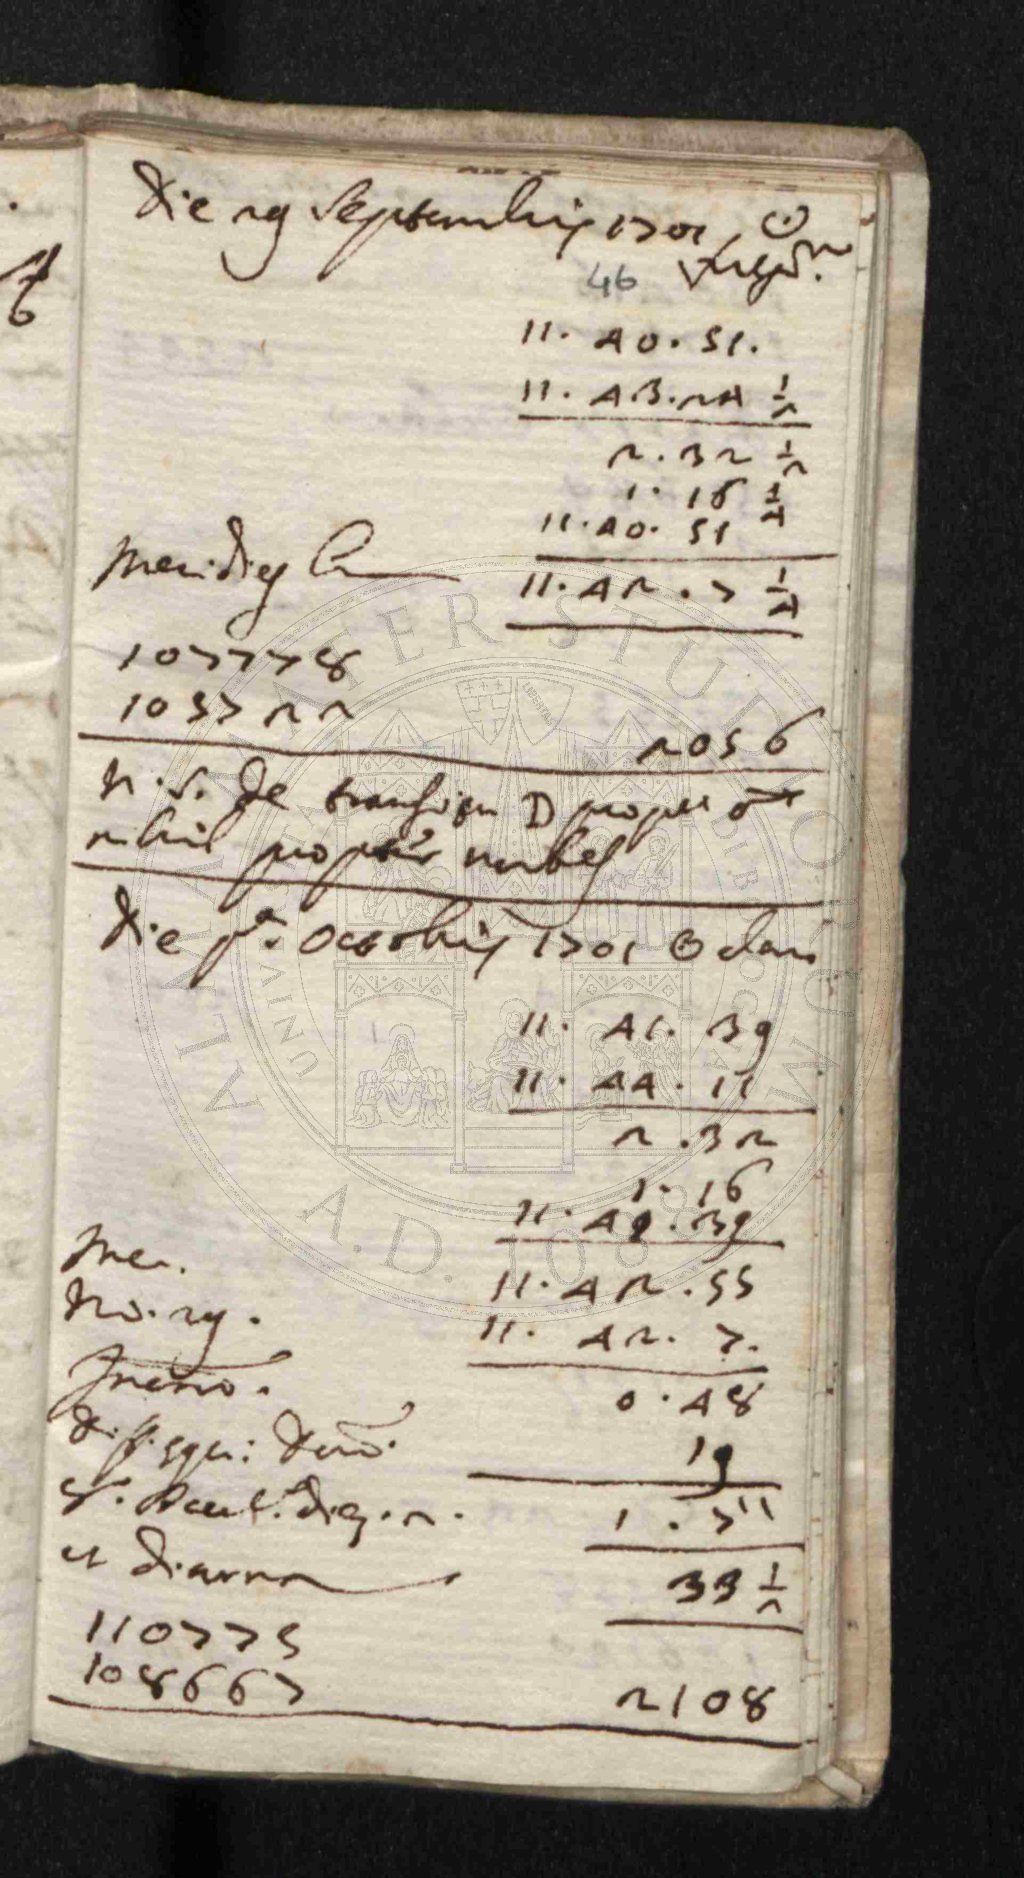 Die 29 Septembris 1701 ☉
46
11. 40. 51.
11. 43. 24 1/2
2. 32 1/2
1. 16 1/4
11. 40. 51
Meridies 11. 42. 7 1/4
107778
105722 2056
N. S. de transitu D propter
nihil propter nubes
Die p.a Octobris 1701 ☉
11. 41. 39
11. 44. 11
2. 32
1. 16
11. 41. 39
Mer. 11. 42. 55
Die 29. 11. 42. 7.
0. 48
19
1. 7''
et diurna 33 1/2
110775
108667 2108
ALMA MATER STUDIORUM
A.D. 1088